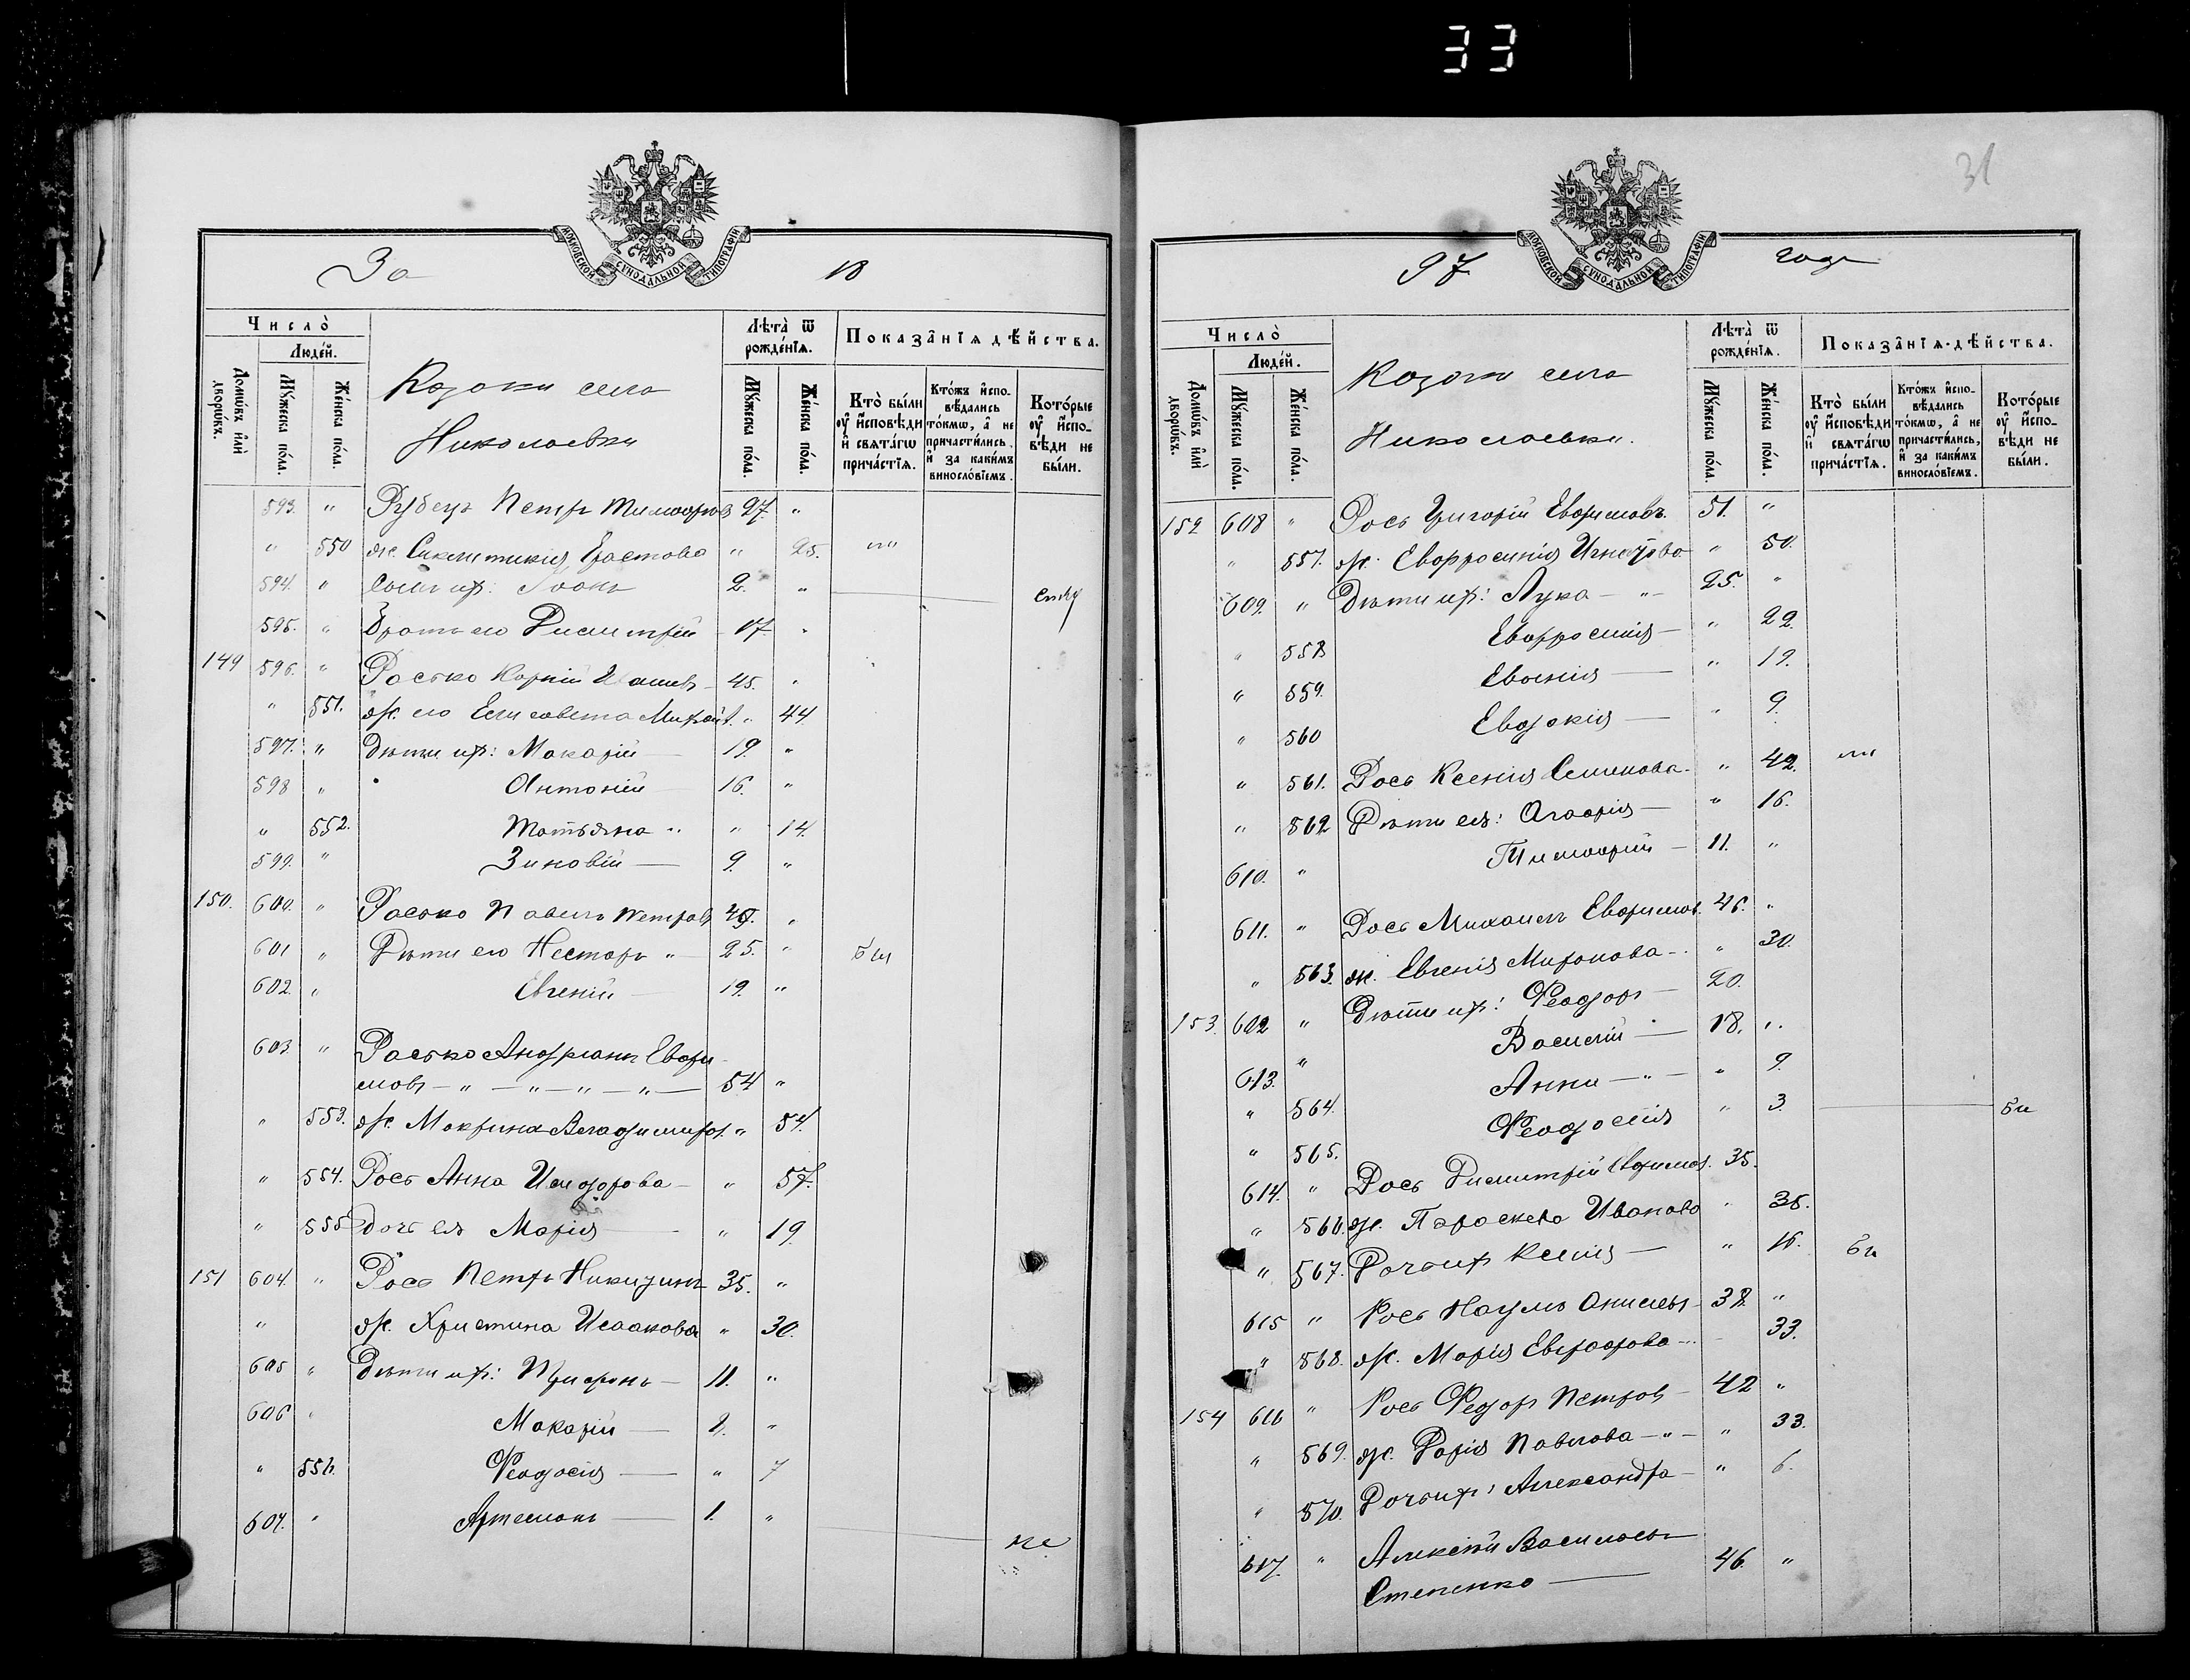 33
31
МОСКОВСКОЙ СУНОДАЛЬНОЙ ТИПОГРАФІИ
За 18
Число̀
Людéй.
Домѡ́въ и҆лѝ дворѡ́въ.
Мꙋ́жеска по́ла.
Же́нска по́ла.
Козаки села
Николаевки
Лѣта̀ ѿ рождéнїѧ.
Мꙋ́жеска по́ла.
Же́нска по́ла.
Показа̑нїѧ дѣ́йства.
Кто̀ бы́ли ᲂу҆ и҆сповѣ́ди и҆ свѧта́гѡ прича́стїѧ.
Кто́жъ и҆сповѣ́дались то́кмѡ, а҆ не причасти́лись, и҆ за каки́мъ винослóвїемъ.
Кото́рые ᲂу҆ и҆спо-вѣ́ди не бы́ли.
593. " Рубецъ Петръ Тимофеев 27. "
" 550 ж. Синклитикія Ерастова " 25.
594. " Сынъ их: Іоанъ 2. "
595. " Братъ его Димитрій 17. "
149 596. " Росько Корній 45. "
" 551. ж. его Елисавета Михаил. " 44
597. " Дѣти их: Макарій 19. "
598 " Антоній 16. "
" 552. Татьяна " " 14.
599. " Зиновій 9. "
150. 600. " Росько Павелъ Петровъ "
601 " Дѣти его Несторъ " 25. "
602. " Евгеній 19. "
603 " Росько Андріанъ Евфи-
мовъ " " " " 54 "
" 553. ж. Макрина Владимиров. " 54.
" 554. Рось Анна Исидорова " 57.
" 555 Дочь ея Марія " 19.
151 604 " Рось Петръ 35. "
" ж. Христина Исаакова " 30.
605 " Дѣти их: Трифонъ 11. "
606 " Макарій "
" 556. Феодосія " 7
607. " Артемонъ 1. "
97 года
Число̀
Людéй.
Домѡ́въ и҆лѝ дворѡ́въ.
Мꙋ́жеска по́ла.
Же́нска по́ла.
Козаки села
Николаевки.
Лѣта̀ ѿ рождéнїѧ.
Мꙋ́жеска по́ла.
Же́нска по́ла.
Показа̑нїѧ дѣ́йства.
Кто̀ бы́ли ᲂу҆ и҆сповѣ́ди и҆ свѧта́гѡ прича́стїѧ.
Кто́жъ и҆сповѣ́дались то́кмѡ, а҆ не причасти́лись, и҆ за каки́мъ винослóвїемъ.
Кото́рые ᲂу҆ и҆спо-вѣ́ди не бы́ли.
152 608 " Рось Григорій Евфимовъ. 51. "
" 557. ж. Евфросинія Игнатова " 50.
609. " Дѣти их: Лука " 25. "
" 558 Евфросинія " 22.
" 559. Евфимія " 19.
" 560 Евдокія " 9.
" 561. Рось Ксенія Семенова. " 42.
" 562 Дѣти ея: Агафія " 16.
610. " Тимофей 11. "
611. " Рось Михаилъ Евфимов. 46. "
" 563. ж. Евгенія Миронова " 30.
153. 612 " Дѣти их: Феодоръ 20.
613. " Василій 18. "
" 564. Анна " " 9.
" 565. Феодосія " 3.
614. " Рось Димитрій Евфимов. 35.
" 566. ж. Параскева Иванова " 35.
" 567. Дочь их Ксенія "
615 " Рось Наумъ 38. "
" 568. ж. Марія 33.
154 616 " Рось Феодоръ Петров 42 "
" 569. ж. Дарія Павлова " " 33.
" 570. Дочь их: Александра " 6.
617. " Алексѣй Васильевъ
Степенко 46. "